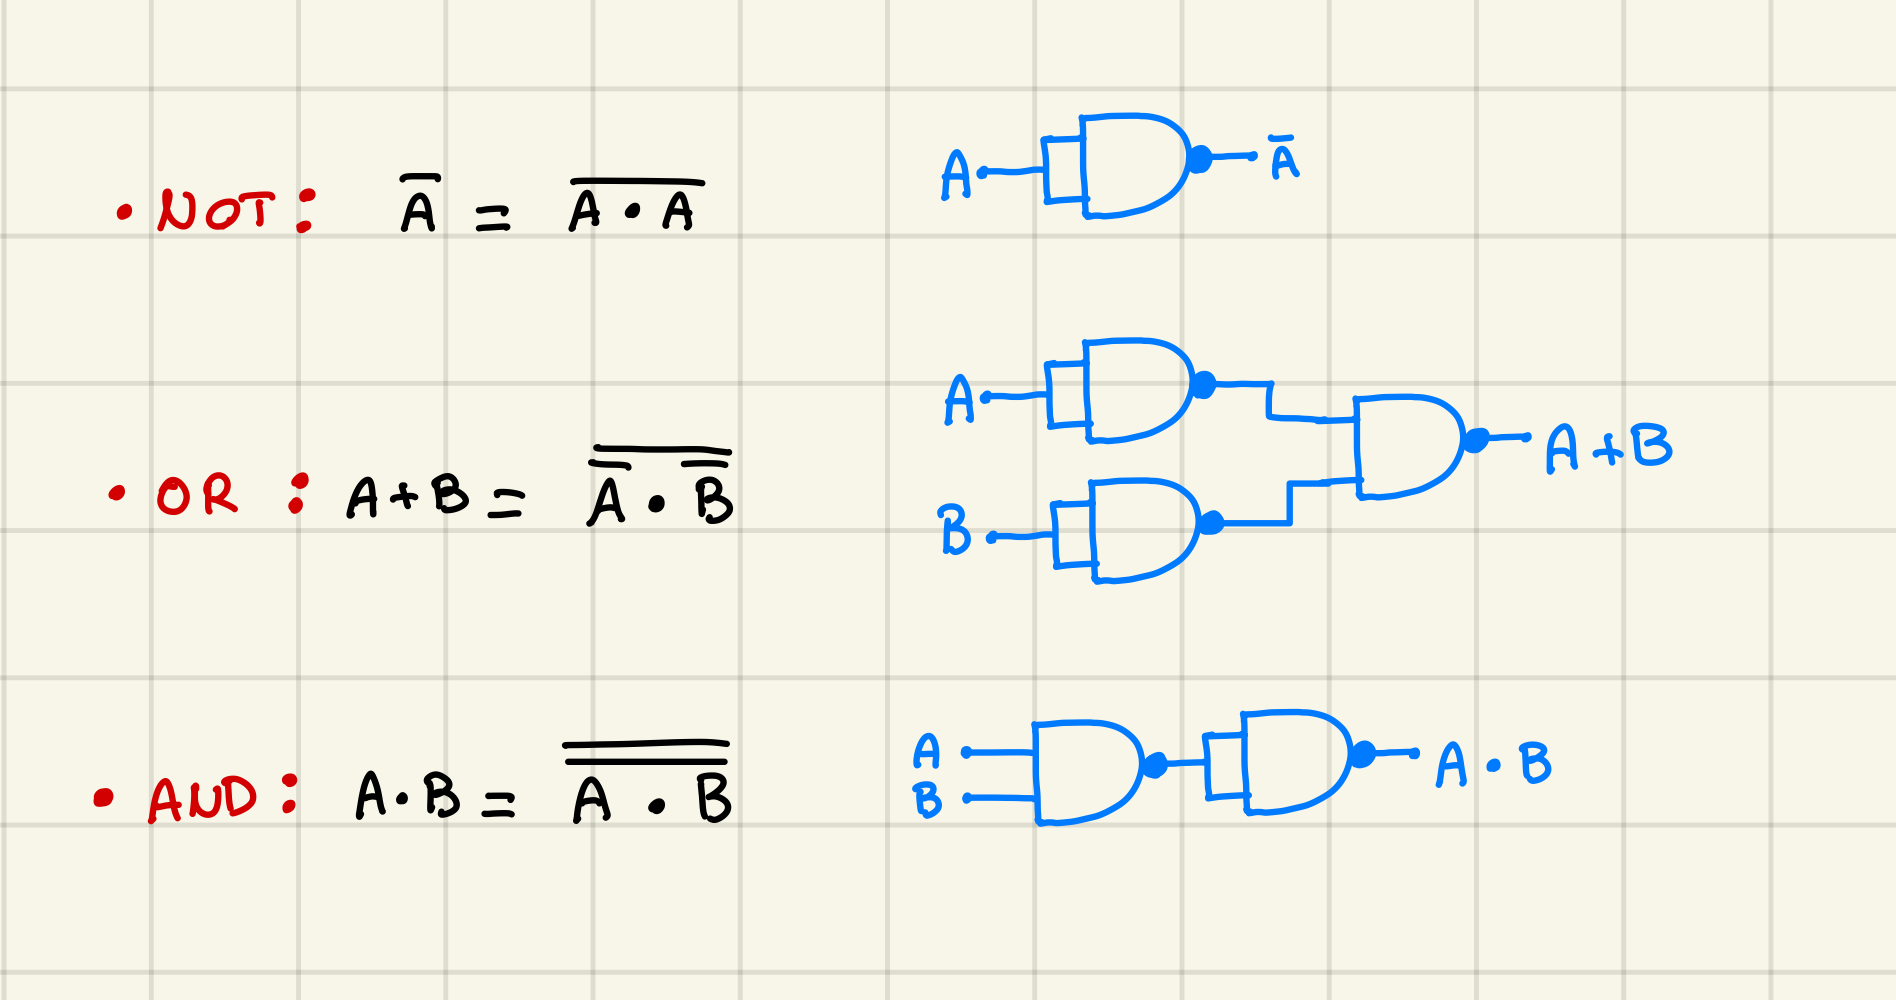 • NOT: A̅ = \overline{A • A}
A
A̅
• OR : A+B = \overline{\overline{A} • \overline{B}}
A
B
A+B
• AND: A•B = \overline{\overline{A • B}}
A
B
A • B